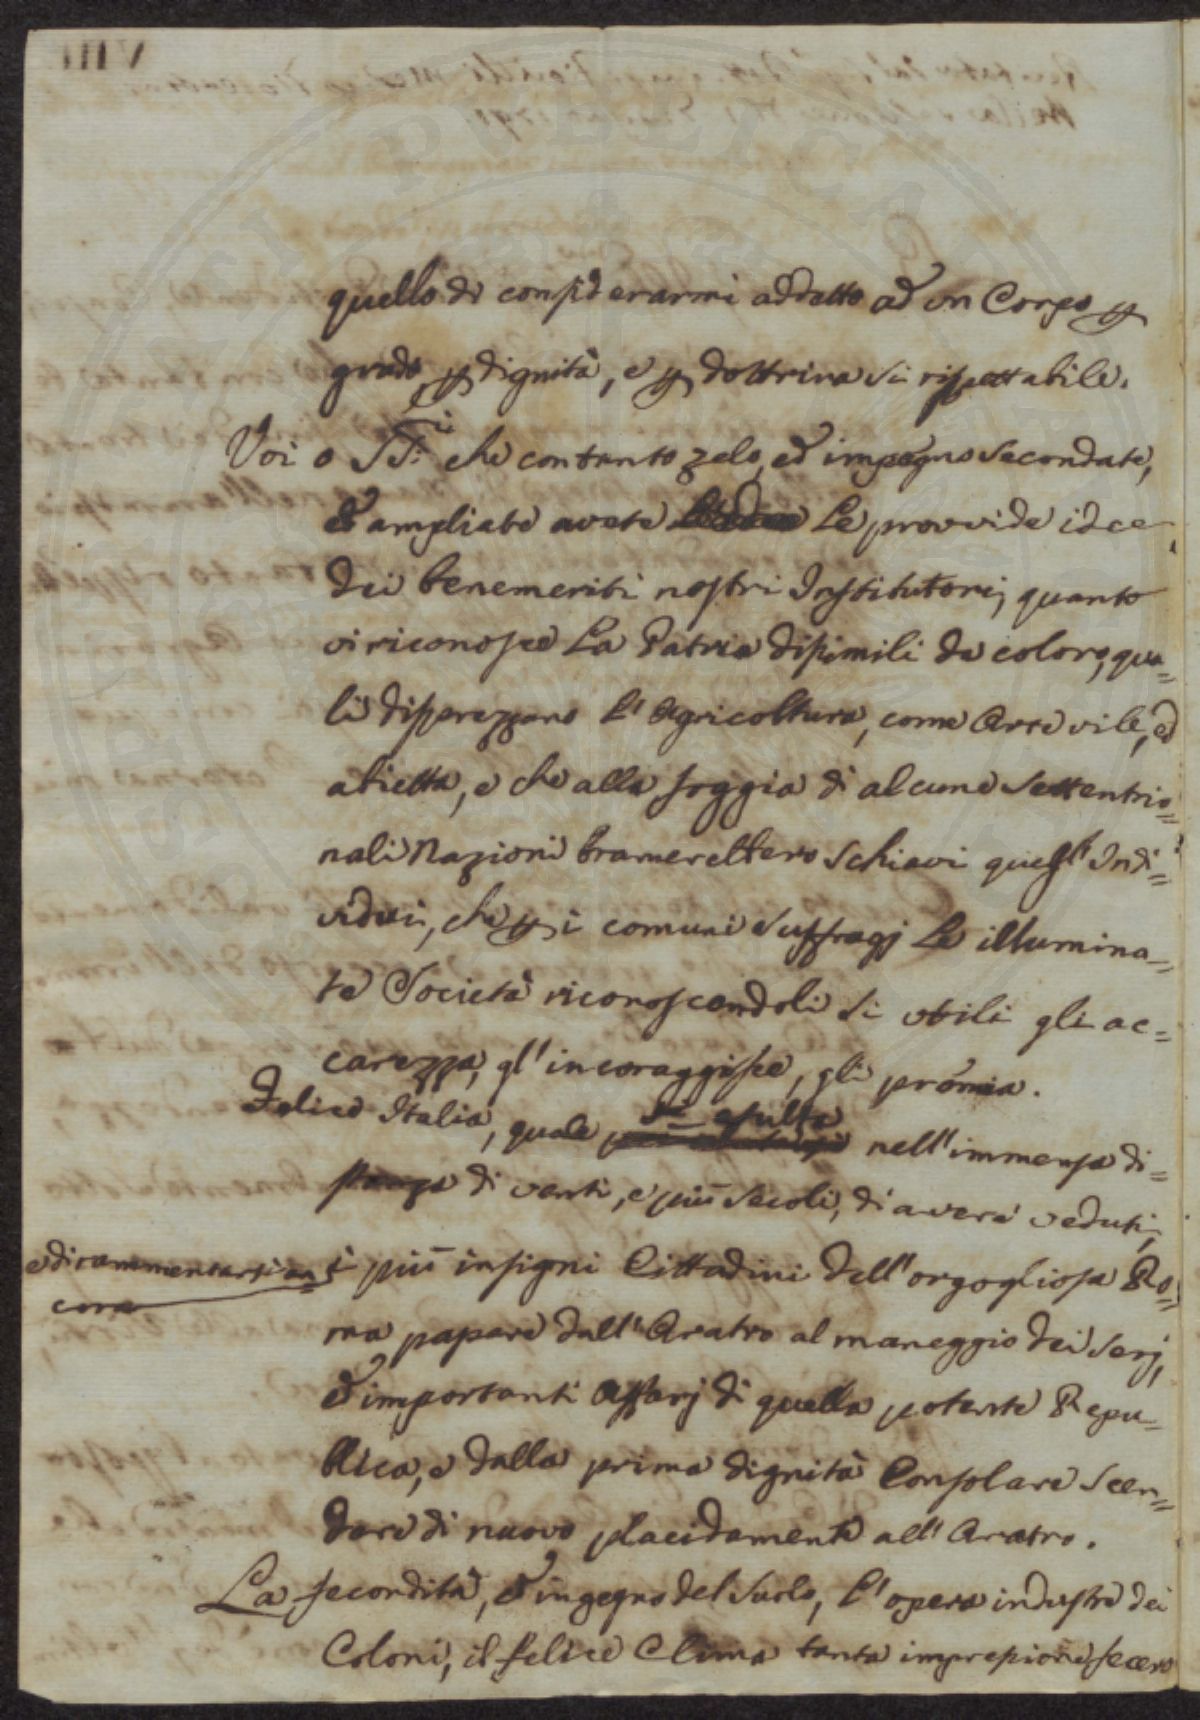 quello di considerarmi addetto ad un Corpo p
grado p dignità, e p dottrina si rispettabile.
Voi o SS.ri che con tanto zelo, ed impegno secondate,
ed ampliate avete le provvide idee
dei benemeriti nostri Institutori, quanto
vi riconosce La Patria dissimili da coloro, qua=
li disprezzano l'Agricoltura, come Arte vile, ed
abietta, e che alla foggia di alcune settentrio=
nali Nazioni bramerebbero schiavi quegl'Indi=
vidui, che p i comuni suffragj Le illumina=
te Società riconoscendoli si utili gli ac=
carezza, gl'incoraggisce, gli premia.
Felice Italia, quale esulta nell'immensa di=
stanza di venti, e più secoli, di avere veduti,
e di rammentarsi an=
cora
i più insigni Cittadini dell'orgogliosa Ro=
ma passare dall'Aratro al maneggio dei serj,
ed importanti Affarj di quella potente Repu=
blica, e dalla prima dignità Consolare scen=
dere di nuovo placidamente all'Aratro.
La fecondità, ed ingegno del suolo, l'opera industre dei
Coloni, il felice Clima tanta impressione fecero